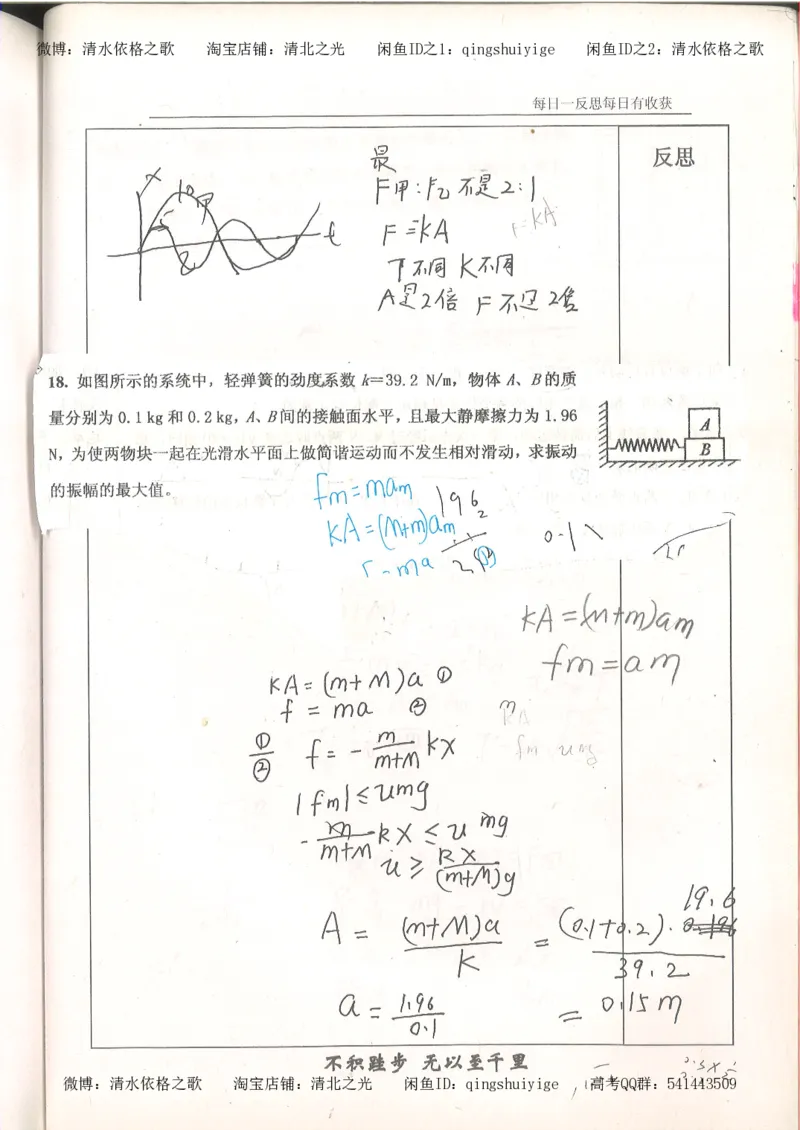 微博：清水依格之歌 淘宝店铺：清北之光 闲鱼ID之1：qingshuiyige 闲鱼ID之2：清水依格之歌
每日一反思每日有收获
反思
最
F甲:F乙 不是2:1
F=kA
F=kA
T不同 K不同
A是2倍 F不是2倍
x
10
甲
5
乙
t
18. 如图所示的系统中，轻弹簧的劲度系数 k=39.2 N/m，物体 A、B 的质
量分别为 0.1 kg 和 0.2 kg，A、B 间的接触面水平，且最大静摩擦力为 1.96
N，为使两物块一起在光滑水平面上做简谐运动而不发生相对滑动，求振动
的振幅的最大值。
A
B
fm=mam
KA=(M+m)am
196
0.1
KA=(m+m)am
fm=am
KA=(m+M)a ①
f=ma ②
①/② f=-m/(m+M) kx
|fm|≤umg
-m/(m+M) kx≤umg
u≥kx/((m+M)g)
A=(m+M)a/K=(0.1+0.2)·19.6/39.2
a=1.96/0.1 =0.15m
不积跬步 无以至千里
微博：清水依格之歌 淘宝店铺：清北之光 闲鱼ID：qingshuiyige 高考QQ群：541443509